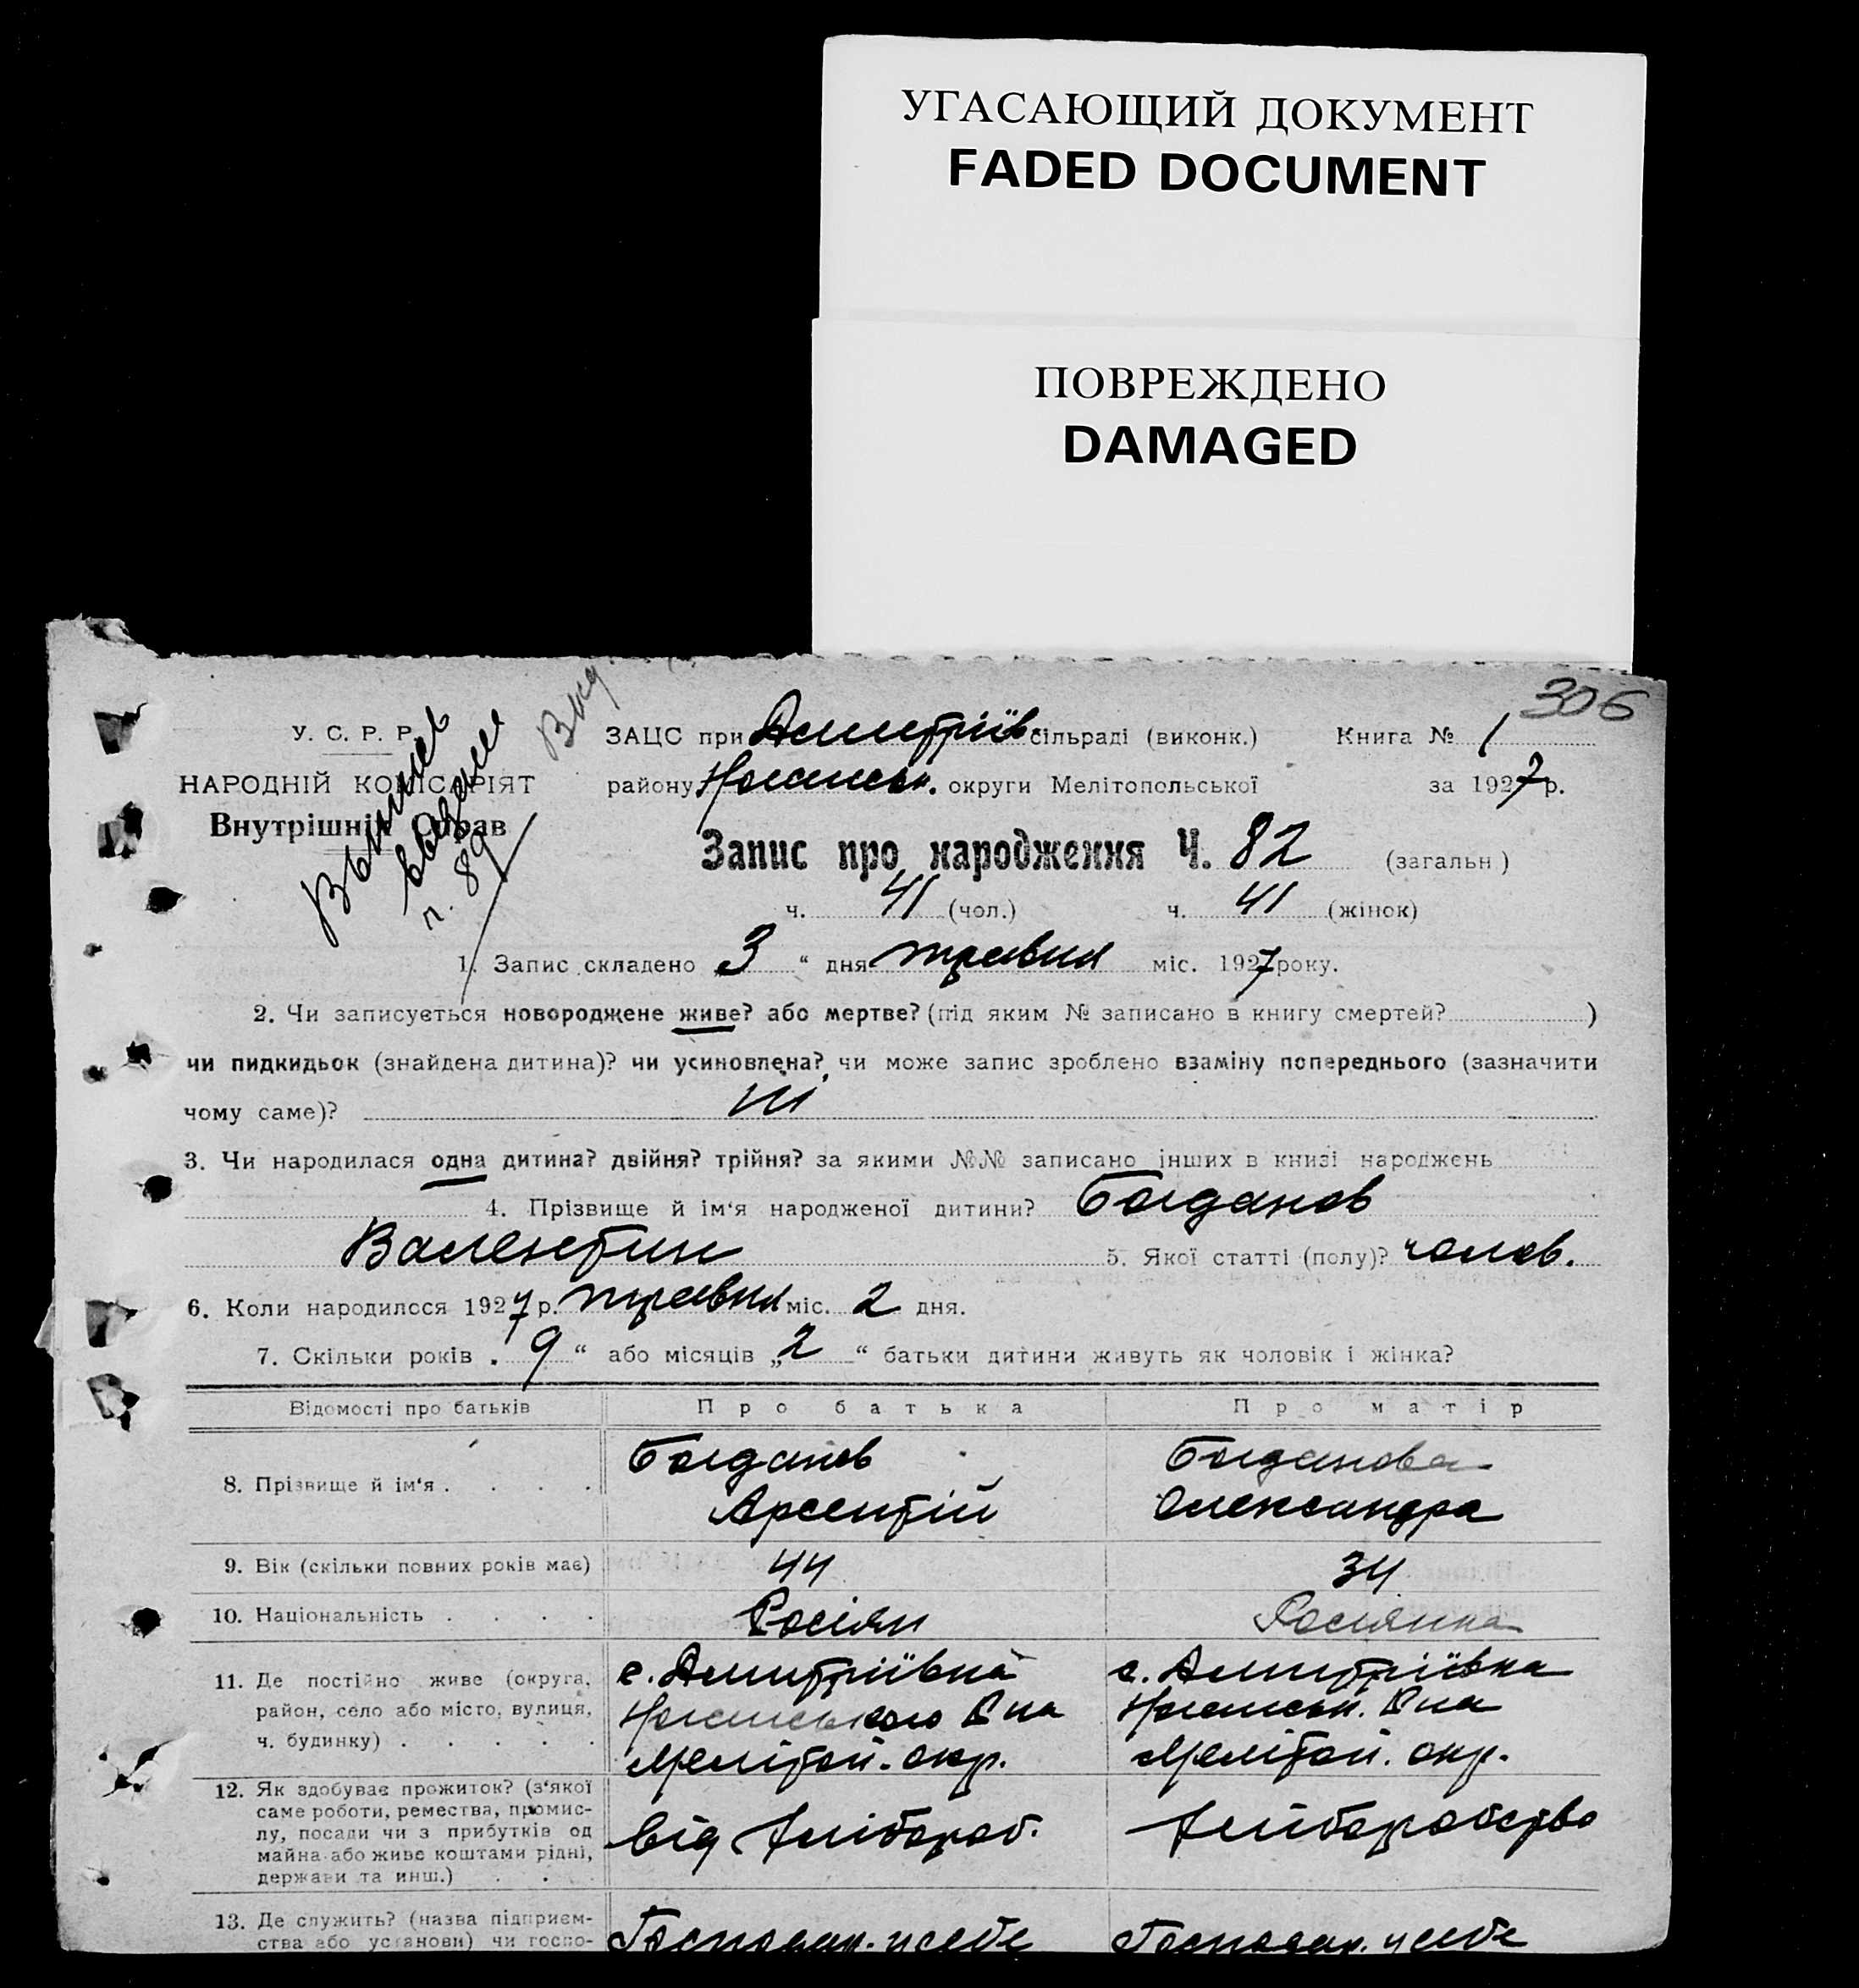 УГАСАЮЩИЙ ДОКУМЕНТ
FADED DOCUMENT
ПОВРЕЖДЕНО
DAMAGED
306
У. С. Р. Р.
НАРОДНІЙ КОМІСАРІЯТ
Внутрішніх Справ
п. 89
ЗАЦС при Дмитріїв. сільраді (виконк.) Книга № 1
району округи Мелітопольської за 1927 р.
Запис про народження Ч. 82 (загальн)
ч. 41 (чол.) ч. 41 (жінок)
1. Запис складено 3 " дня травня міс. 1927 року.
2. Чи записується новороджене живе? або мертве? (під яким № записано в книгу смертей? )
чи пидкидьок (знайдена дитина)? чи усиновлена? чи може запис зроблено взаміну попереднього (зазначити
чому саме)? ні
3. Чи народилася одна дитина? двійня? трійня? за якими №№ записано інших в книзі народжень
4. Прізвище й ім'я народженої дитини? Богданов
Валентин 5. Якої статті (полу)? чолов.
6. Коли народилося 1927 р. травня міс. 2 дня.
7. Скільки років „ 9 " або місяців „ 2 " батьки дитини живуть як чоловік і жінка?
Відомості про батьків Про батька Про матір
8. Прізвище й ім'я . . . . Богданов Богданова
Арсентій Олександра
9. Вік (скільки повних років має) 44 34
10. Національність . . . . Росіян Росіянка
11. Де постійно живе (округа, с. Дмитріївка с. Дмитріївка
район, село або місто, вулиця, Р-на Р-на
ч. будинку) . . . . . Мелітоп. окр. Мелітоп. окр.
12. Як здобуває прожиток? (з'якої
саме роботи, ремества, промис-
лу, посади чи з прибутків од від хлібороб. хліборобство
майна або живе коштами рідні,
держави та инш.) . . .
13. Де служить? (назва підприєм- Господар. у себе Господар. у себе
ства або установи) чи госпо-